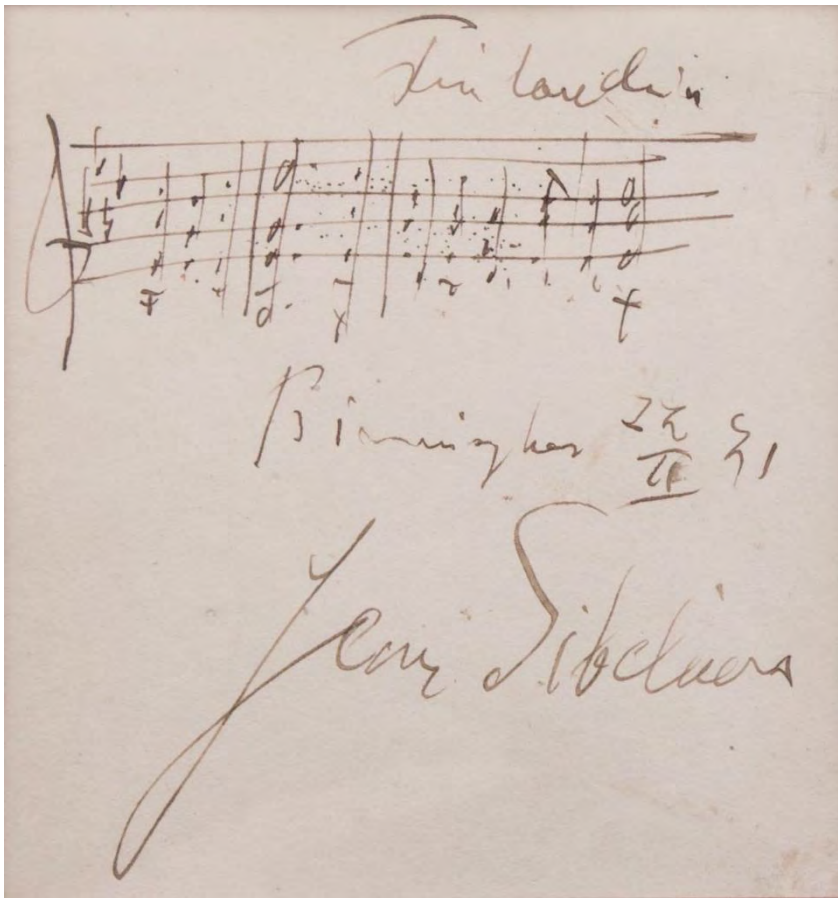 Finlandia
Birmingham
Jean Sibelius